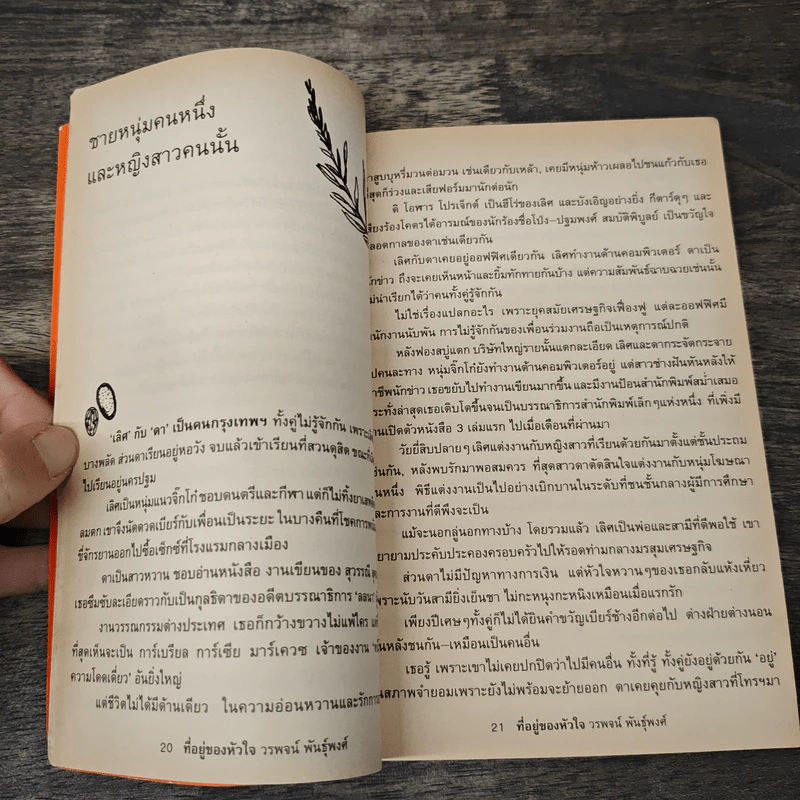 ชายหนุ่มคนหนึ่ง
และหญิงสาวคนนั้น
'เลิศ' กับ 'ดา' เป็นคนกรุงเทพฯ ทั้งคู่ไม่รู้จักกัน
บางพลัด ส่วนดาเรียนอยู่หอวัง จบแล้วเข้าเรียนที่สวนดุสิต
ไปเรียนอยู่นครปฐม
เลิศเป็นหนุ่มแนวจิ๊กโก๋ ชอบดนตรีและกีฬา แต่ก็ไม่ทิ้ง
ลมตก เขาจึงนัดดวดเบียร์กับเพื่อนเป็นระยะ ในบางคืนที่โชค
ขี่จักรยานออกไปซื้อเซ็กซ์ที่โรงแรมกลางเมือง
ดาเป็นสาวหวาน ชอบอ่านหนังสือ งานเขียนของ สุวรรณี
เธอซึมซับละเอียดราวกับเป็นกุลธิดาของอดีตบรรณาธิการ
งานวรรณกรรมต่างประเทศ เธอก็กว้างขวางไม่แพ้ใคร
ที่สุดเห็นจะเป็น การ์เบรียล การ์เซีย มาร์เควซ เจ้าของงาน
ความโดดเดี่ยว' อันยิ่งใหญ่
แต่ชีวิตไม่ได้มีด้านเดียว ในความอ่อนหวานและรัก
20 ที่อยู่ของหัวใจ วรพจน์ พันธุ์พงศ์
าสูบบุหรี่มวนต่อมวน เช่นเดียวกับเหล้า, เคยมีหนุ่มห้าวเผลอไปชนแก้วกับเธอ
สุดก็ร่วงและเสียฟอร์มมานักต่อนัก
ดิ โอฬาร โปรเจ็กต์ เป็นฮีโร่ของเลิศ และบังเอิญอย่างยิ่ง กีตาร์ดุๆ และ
สียงร้องโคตรได้อารมณ์ของนักร้องชื่อโป่ง–ปฐมพงศ์ สมบัติพิบูลย์ เป็นขวัญใจ
ลอดกาลของดาเช่นเดียวกัน
เลิศกับดาเคยอยู่ออฟฟิศเดียวกัน เลิศทำงานด้านคอมพิวเตอร์ ดาเป็น
นักข่าว ถึงจะเคยเห็นหน้าและยิ้มทักทายกันบ้าง แต่ความสัมพันธ์ฉาบฉวยเช่นนั้น
ม่น่าเรียกได้ว่าคนทั้งคู่รู้จักกัน
ไม่ใช่เรื่องแปลกอะไร เพราะยุคสมัยเศรษฐกิจเฟื่องฟู แต่ละออฟฟิศมี
นักงานนับพัน การไม่รู้จักกันของเพื่อนร่วมงานถือเป็นเหตุการณ์ปกติ
หลังฟองสบู่แตก บริษัทใหญ่รายนั้นแตกละเอียด เลิศและดากระจัดกระจาย
ปคนละทาง หนุ่มจิ๊กโก๋ยังทำงานด้านคอมพิวเตอร์อยู่ แต่สาวช่างฝันหันหลังให้
าชีพนักข่าว เธอขยับไปทำงานเขียนมากขึ้น และมีงานป้อนสำนักพิมพ์สม่ำเสมอ
ระทั่งล่าสุดเธอเติบโตขึ้นจนเป็นบรรณาธิการสำนักพิมพ์เล็กๆแห่งหนึ่ง ที่เพิ่งมี
านเปิดตัวหนังสือ 3 เล่มแรก ไปเมื่อเดือนที่ผ่านมา
วัยยี่สิบปลายๆ เลิศแต่งงานกับหญิงสาวที่เรียนด้วยกันมาตั้งแต่ชั้นประถม
ช่นกัน, หลังพบรักมาพอสมควร ที่สุดสาวดาตัดสินใจแต่งงานกับหนุ่มโฆษณา
นหนึ่ง พิธีแต่งงานเป็นไปอย่างเบิกบานในระดับที่ชนชั้นกลางผู้มีการศึกษา
ละการงานที่ดีพึงจะเป็น
แม้จะนอกลู่นอกทางบ้าง โดยรวมแล้ว เลิศเป็นพ่อและสามีที่ดีพอใช้ เขา
ยายามประคับประคองครอบครัวไปให้รอดท่ามกลางมรสุมเศรษฐกิจ
ส่วนดาไม่มีปัญหาทางการเงิน แต่หัวใจหวานๆของเธอกลับแห้งเหี่ยว
พราะนับวันสามียิ่งเย็นชา ไม่กะหนุงกะหนิงเหมือนเมื่อแรกรัก
เพียงปีเศษๆทั้งคู่ก็ไม่ได้ยินคำขวัญเบียร์ช้างอีกต่อไป ต่างฝ่ายต่างนอน
หันหลังชนกัน—เหมือนเป็นคนอื่น
เธอรู้ เพราะเขาไม่เคยปกปิดว่าไปมีคนอื่น ทั้งที่รู้ ทั้งคู่ยังอยู่ด้วยกัน 'อยู่'
นสภาพจำยอมเพราะยังไม่พร้อมจะย้ายออก ดาเคยคุยกับหญิงสาวที่โทรฯมา
21 ที่อยู่ของหัวใจ วรพจน์ พันธุ์พงศ์